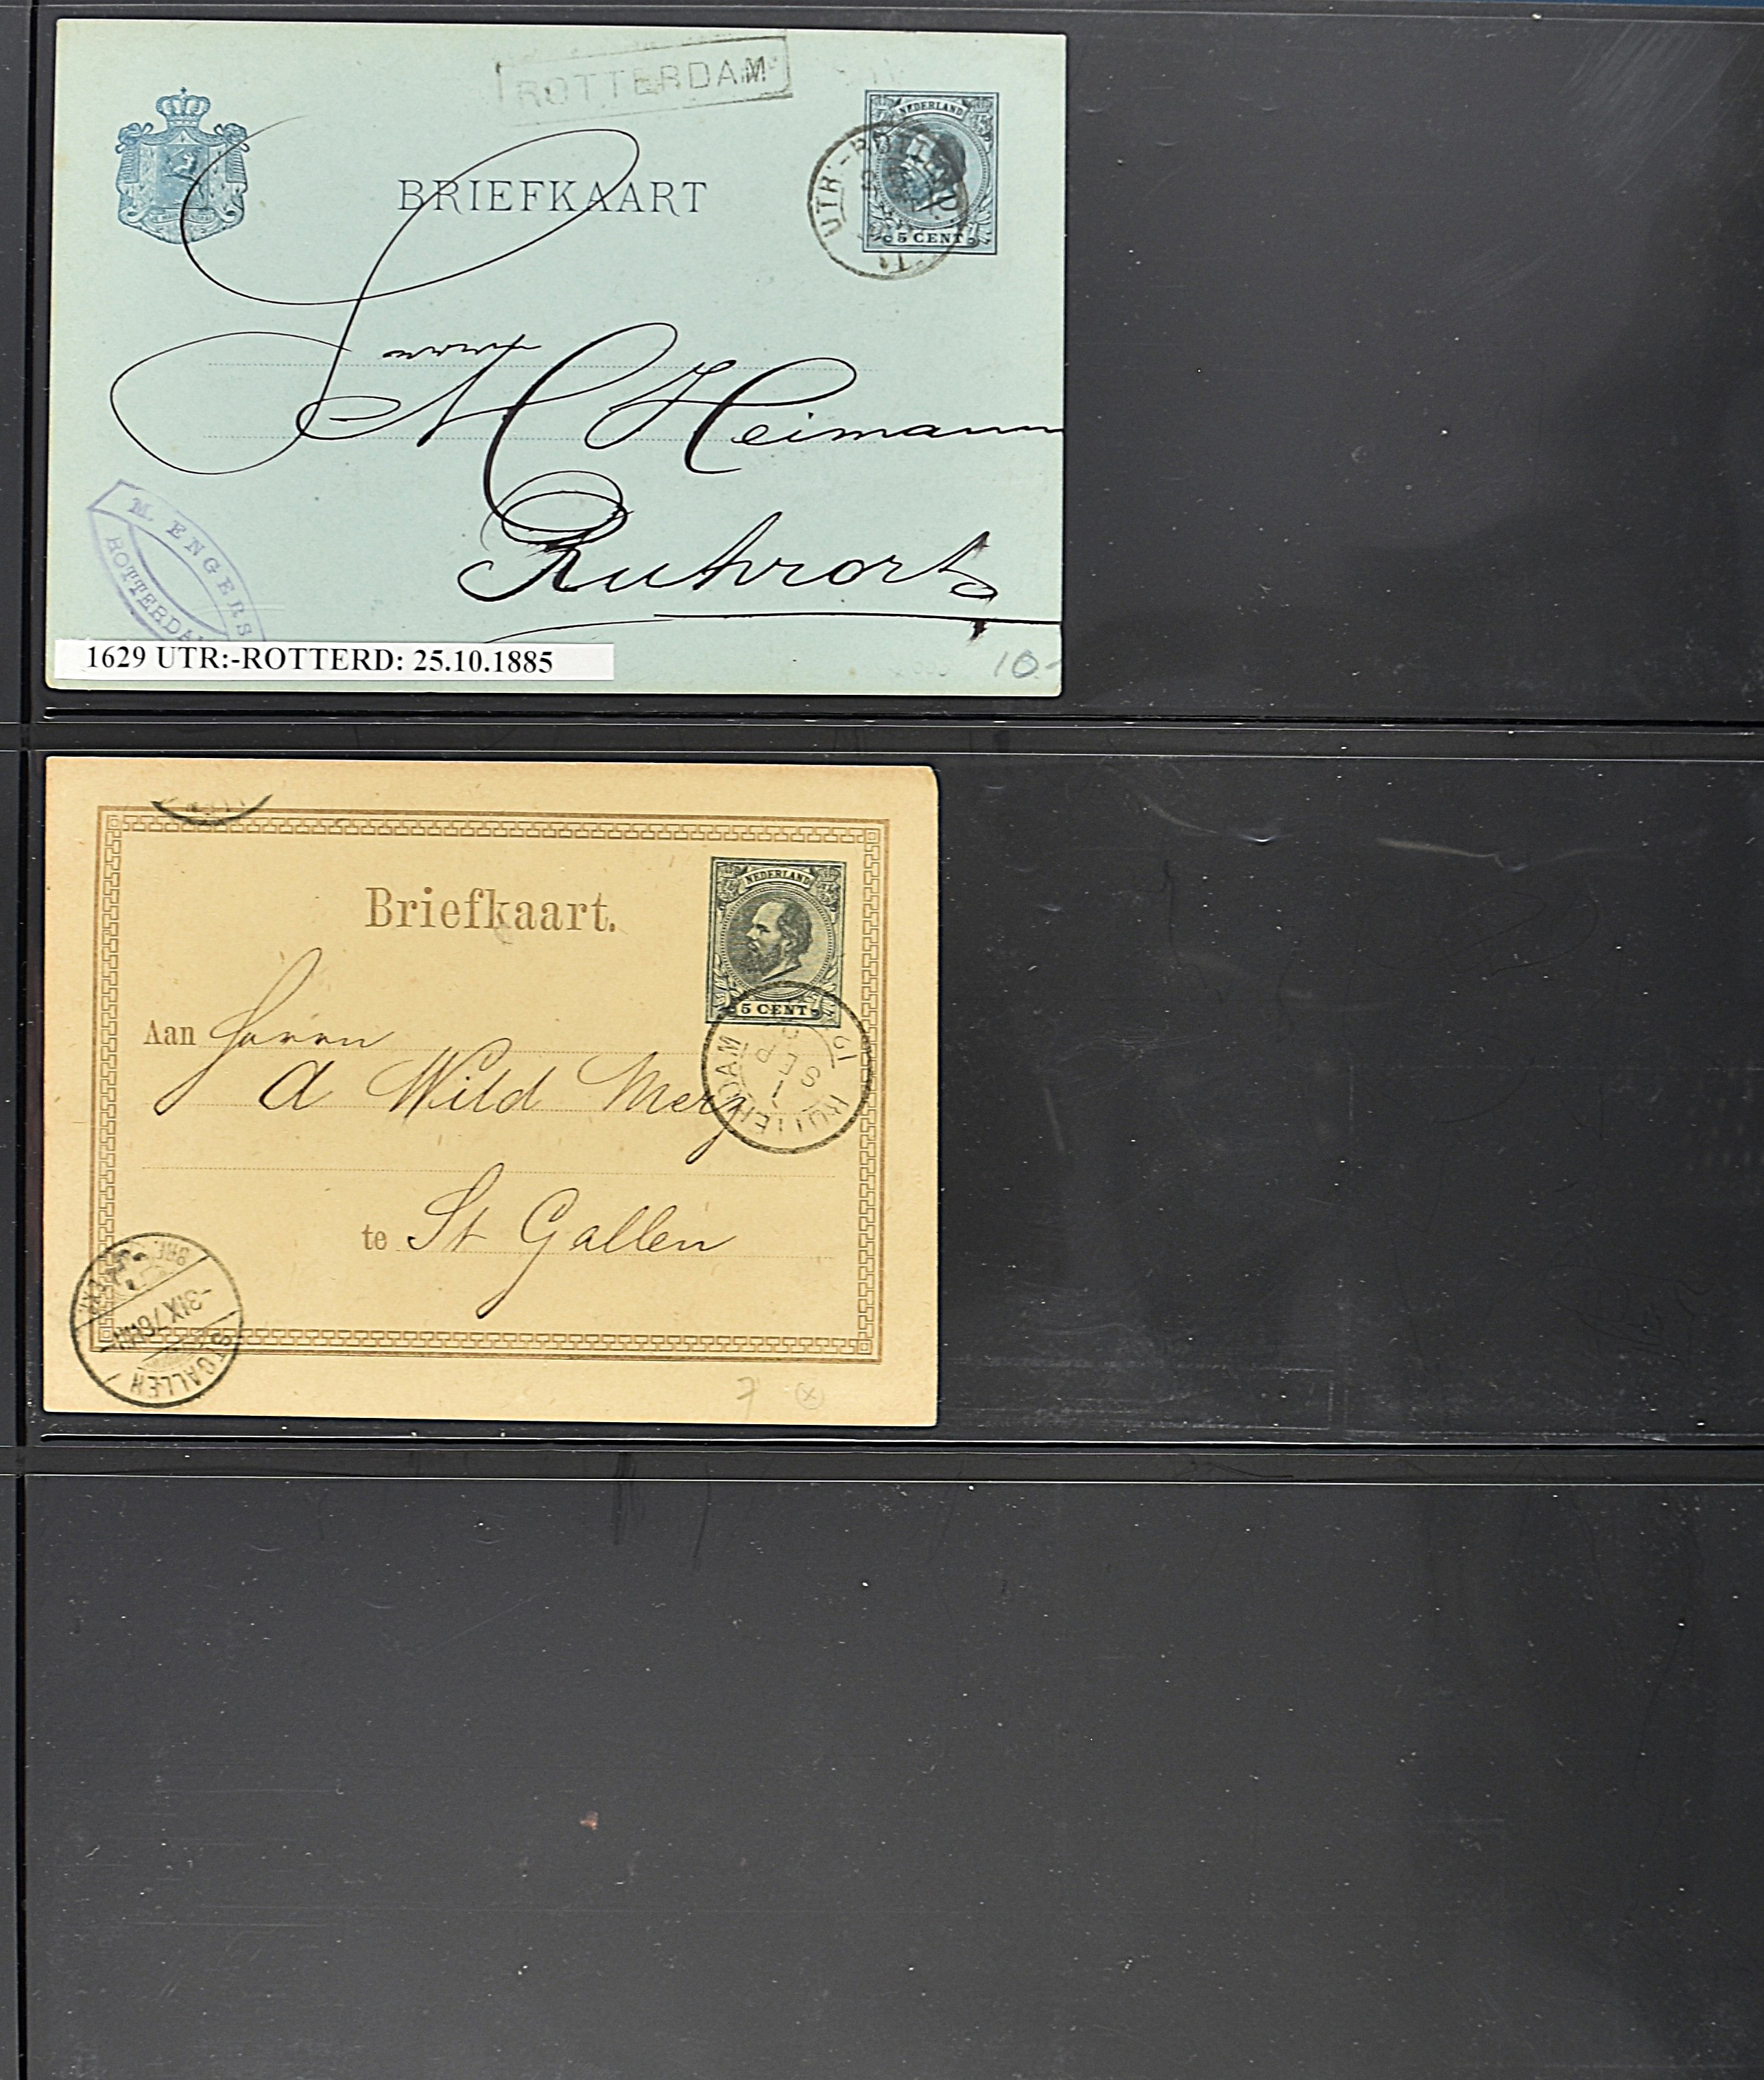 ROTTERDAM
NEDERLAND
BRIEFKAART
UTR:-ROTTERD:
5 CENT
M Heimann
Ruhrort
M. ENGERS
ROTTERDAM
1629 UTR:-ROTTERD: 25.10.1885
10.-
Briefkaart.
NEDERLAND
5 CENT
Aan Herrn
A Wild Merz
ROTTERDAM
1 SEP
te St Gallen
BRF. EXP.
-3 IX 76
ST GALLEN
7